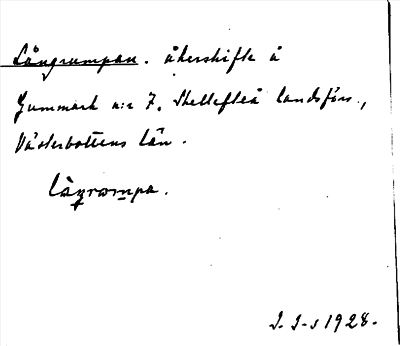 Långrumpan. åkerskifte å
Gummark n:r 7. Skellefteå landsförs.,
Västerbottens län.
làŋrɷmpa.
J. I-s 1928.